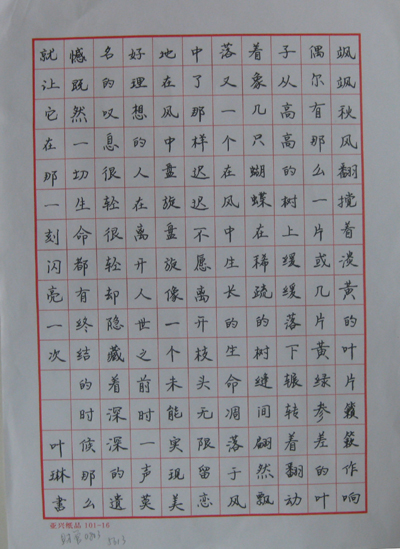 飒飒秋风翻搅着泼黄的叶片簌簌作响
偶尔有那么一片或几片黄绿参差的叶
子从高高的树上缓缓落下辗转着翻动
着象几只蝴蝶在稀疏的树缝间翩然飘
落又一个在风中生长的生命凋落于风
中了那样迟迟不愿离开枝头无限留恋
地在风中盘旋盘旋像一个未能实现美
好理想的人在离开人世之前时一声莫
名的叹息很轻很轻却隐藏着深深的遗
憾既然一切生命都有终结的时候那么
就让它在那一刻闪亮一次
叶琳书
亚兴纸品 101-16